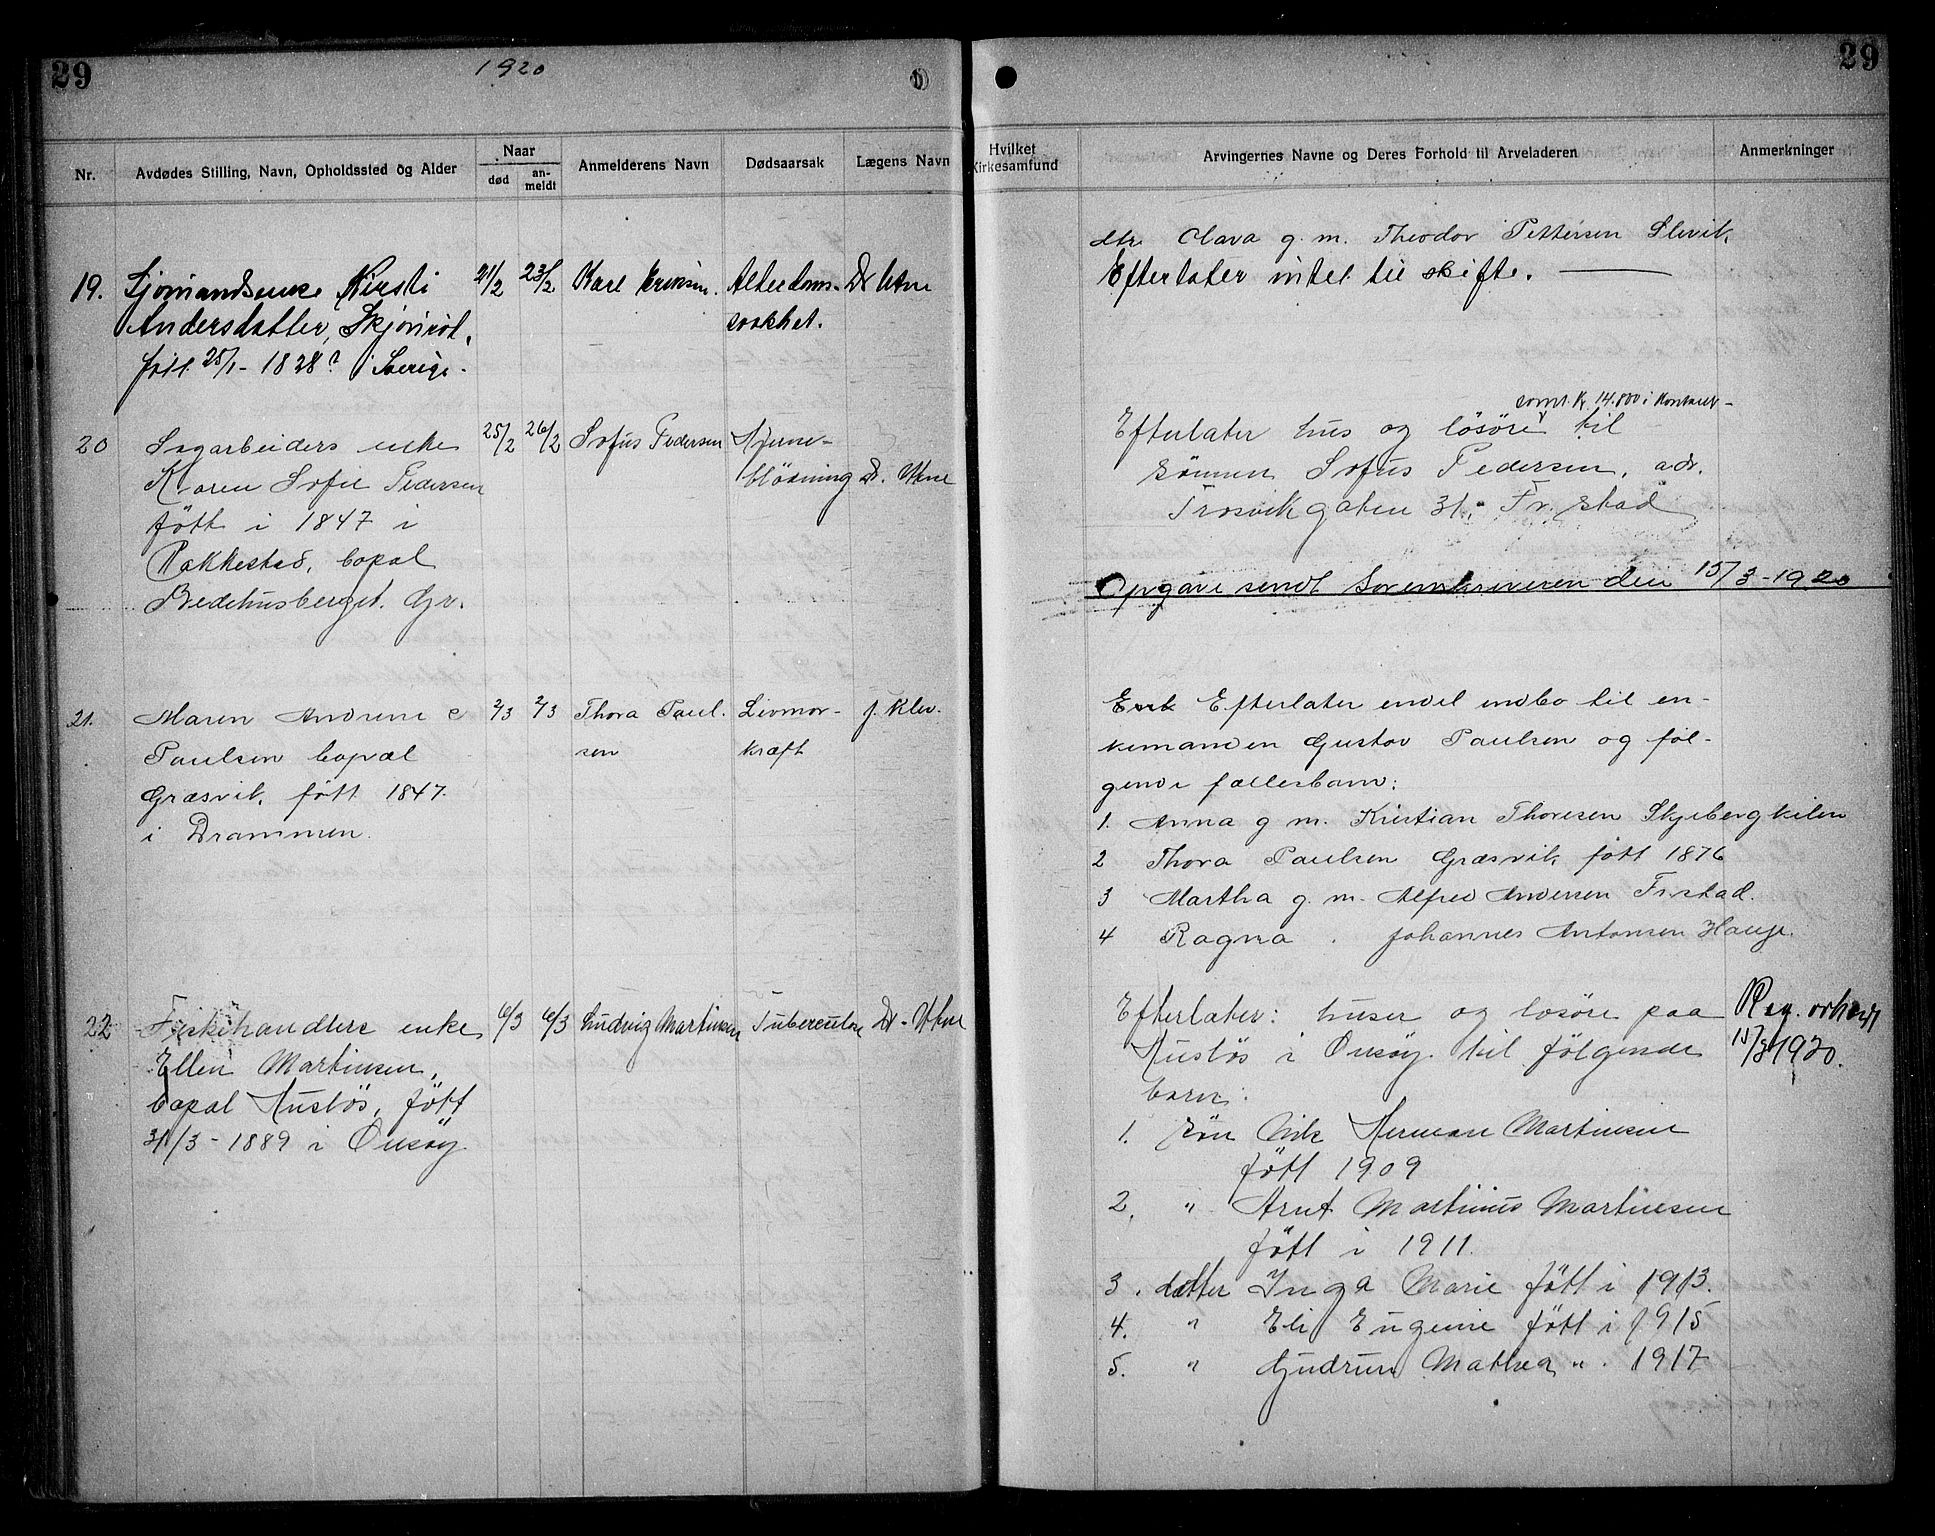 29
1920
29
Nr.
Avdødes Stilling, Navn, Opholdssted og Alder
Naar
død
an-
meldt
Anmelderens Navn
Dødsaarsak
Lægens Navn
Hvilket
Kirkesamfund
Arvingernes Navne og Deres Forhold til Arveladeren
Anmerkninger
19.
Sjømandsenke Kirsti
Andersdatter,
født 25/1 - 1828? i Sverige.
21/2
23/2
Karl Eriksen.
Alderdoms-
svakhet.
Dr Utne
dtr. Clara g. m. Theodor Pettersen Slevik
Efterlater intet til skifte.
20
Sagarbeiders enke
Karen Sofie Pedersen
født i 1847 i
Rakkestad, bopæl
Bedehusberget. Gr.
25/2
26/2
Sofus Pedersen
Hjerne-
blødning
Dr. Utne
samt Kr. 14.800 i kontant-
Efterlater hus og løsøre til
sønnen Sofus Pedersen, adr.
Trosvikgaten 31. Fr.stad
Opgave sendt Sorenskriveren den 15/3 - 1920
21.
Maren Andrine e
Paulsen bopæl
Græsvik, født 1847.
i Drammen.
2/3
2/3
Thora Paul.
sen
Livmor-
kræft
J. Klev.
Enk Efterlater endel indbo til en-
kemanden Gustav Paulsen og føl-
gende fællesbarn:
1. Anna g m. Kristian Thoresen Skjebergkilen
2 Thora Paulsen Græsvik født 1876
3 Martha g. m. Alfred Andersen Frstad.
4 Ragna . Johannes Antonsen Hauge.
22
Fiskehandlers enke
Ellen Martinsen,
bopæl Husløs, født
31/3 - 1889 i Onsøy
6/3
6/3
Ludvig Martinsen
Tuberculose
Dr. Utne
Efterlater: huser og løsøre paa
Husløs i Onsøy. til følgende
barn:
1. søn Nils Herman Martinsen
født 1909
2. " Arnt Martinius Martinsen
født i 1911.
3. datter Inga Marie født i 1913.
4. " Eli Eugenie født i 1915
5. " Gudrun Mathea " . 1917
Reg.
15/3 1920.